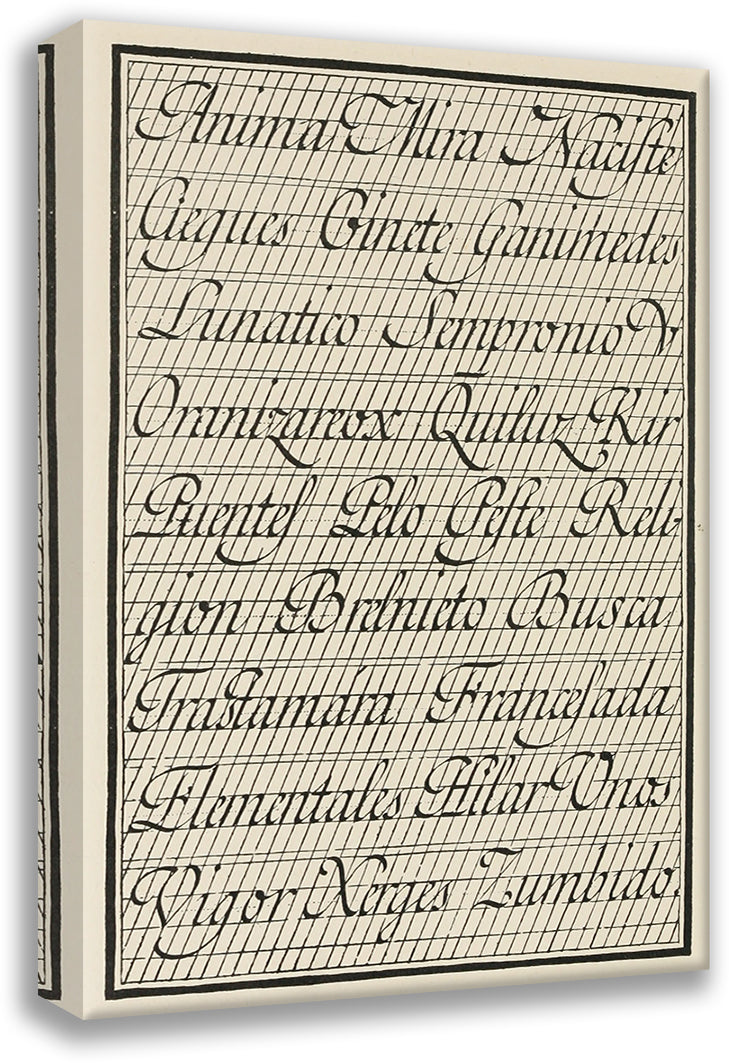 Anima Mira Naciſte
Ciegues Ginete Ganimedes
Lunatico Sempronio V
Omnizareox Quiluz Kir
Puenteſ Pelo Peſte Reli-
gion Brelnieto Busca
Traſtamára Franceſada
Elementales Hilar Vnos
Vigor Xerges Zumbido.